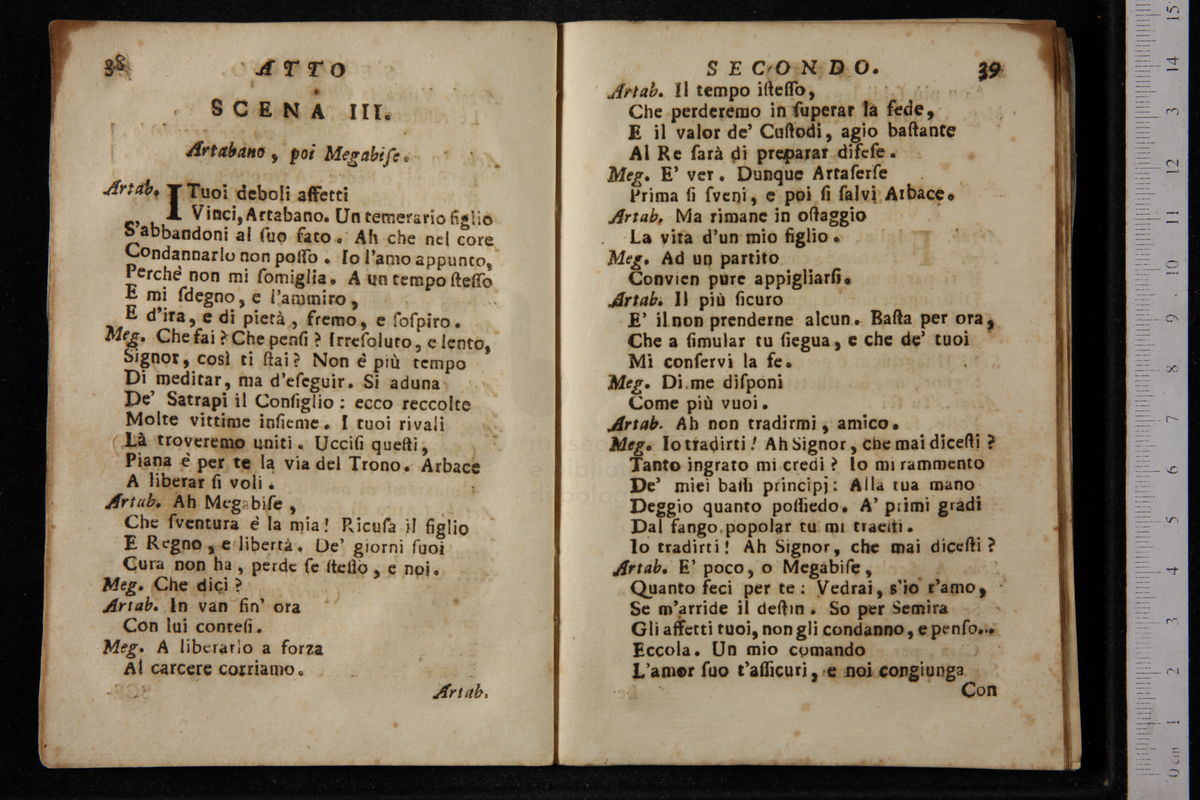 38
ATTO
SCENA III.
Artabano, poi Megabiſe.
Artab. I Tuoi deboli affetti
Vinci, Artabano. Un temerario figlio
S'abbandoni al ſuo fato. Ah che nel core
Condannarlo non poſſo. Io l'amo appunto,
Perchè non mi ſomiglia. A un tempo ſteſſo
E mi ſdegno, e l'ammiro,
E d'ira, e di pietà, fremo, e ſoſpiro.
Meg. Che fai? Che penſi? Irreſoluto, e lento,
Signor, così ti ſtai? Non è più tempo
Di meditar, ma d'eſeguir. Si aduna
De' Satrapi il Conſiglio: ecco reccolte
Molte vittime inſieme. I tuoi rivali
Là troveremo uniti. Ucciſi queſti,
Piana è per te la via del Trono. Arbace
A liberar ſi voli.
Artab. Ah Megabiſe,
Che ſventura è la mia! Ricuſa il figlio
E Regno, e libertà. De' giorni ſuoi
Cura non ha, perde ſe ſteſſo, e noi.
Meg. Che dici?
Artab. In van ſin' ora
Con lui conteſi.
Meg. A liberarlo a forza
Al carcere corriamo.
Artab.
SECONDO.
39
Artab. Il tempo iſteſſo,
Che perderemo in ſuperar la fede,
E il valor de' Cuſtodi, agio baſtante
Al Re ſarà di preparar difeſe.
Meg. E' ver. Dunque Artaſerſe
Prima ſi ſveni, e poi ſi ſalvi Arbace.
Artab. Ma rimane in oſtaggio
La vita d'un mio figlio.
Meg. Ad un partito
Convien pure appigliarſi.
Artab. Il più ſicuro
E' il non prenderne alcun. Baſta per ora,
Che a ſimular tu ſiegua, e che de' tuoi
Mi conſervi la fe.
Meg. Di me diſponi
Come più vuoi.
Artab. Ah non tradirmi, amico.
Meg. Io tradirti! Ah Signor, che mai diceſti?
Tanto ingrato mi credi? Io mi rammento
De' miei baſſi principj: Alla tua mano
Deggio quanto poſſiedo. A' primi gradi
Dal fango popolar tu mi traeſti.
Io tradirti! Ah Signor, che mai diceſti?
Artab. E' poco, o Megabiſe,
Quanto feci per te: Vedrai, s'io t'amo,
Se m'arride il deſtin. So per Semira
Gli affetti tuoi, non gli condanno, e penſo...
Eccola. Un mio comando
L'amor ſuo t'aſſicuri, e noi congiunga
Con
15
14
13
12
11
10
9
8
7
6
5
4
3
2
1
0 cm